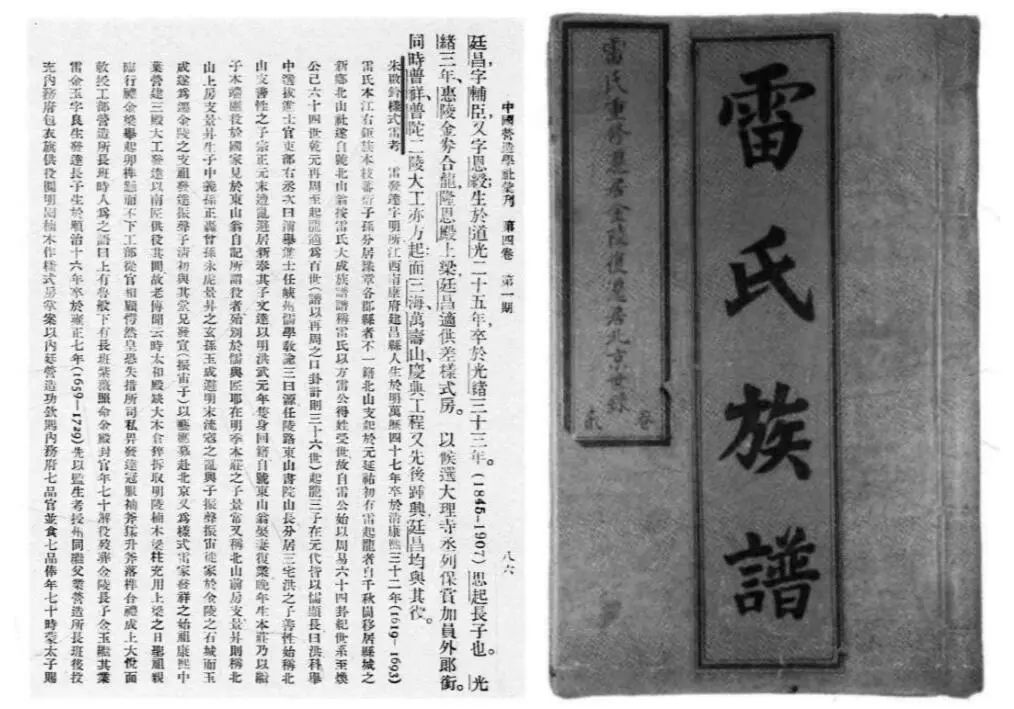 中國營造學社彙刊　第四卷　第一期　八六
廷昌，字輔臣，又字恩綬，生於道光二十五年，卒於光緒三十三年。(1845-1907) 思起長子也。 光
緒三年，惠陵金券合龍，隆恩殿上梁，廷昌適供差樣式房。以候選大理寺丞列保賞加員外郎銜。
同時普祥普陀二陵大工亦方起，而三海，萬壽山，慶典工程又先後踵興，廷昌均與其役。
朱啟鈐樣式雷考　雷發達字明所江西南康府建昌縣人生於明萬曆四十七年卒於清康熙三十二年(1619—1693)
雷氏本江右鉅族本枝蕃衍子孫分居豫章各郡縣者不一籍北山支起於元延祐初有雷起龍者自千秋岡移居縣城之
新鄰北山社遂自號北山翁按雷氏大成族譜譜稱雷氏以方雷公得姓受世故自雷公始以周易六十四卦紀世系至煥
公已六十四世乾元再周至起龍適爲百世(譜以再周之口卦計則三十六世)起龍三子在元代皆以儒顯長曰洪科舉
中選拔進士官東部右丞次曰清舉進士任峽州儒學教諭三曰源任陵路東山書院山長分居三宅洪之子善性始稱北
山支善性之子宗正元末遭亂避居新泰其子文達以明洪武元年隻身回籍自號東山翁娶妻復業晚年生本莊乃以編
子本端應役於國家見於東山翁自記所謂役者始別於儒與匠耶在明季本莊之子景常又稱北山前房支景昇則稱北
山上房支景昇生子中義孫正轟曾孫永虎景昇之玄孫玉成避明末流寇之亂與子振聲振宙徙家於金陵之石城而玉
成遂爲遷金陵之支祖發達振聲子清初與其堂兄發宣(振宙子)以藝應募赴北京又爲樣式雷家發祥之始祖康熙中
葉營建三殿大工發達以南匠供役其間故老傳聞云時太和殿缺大木倉猝拆取明陵楠木梁柱充用上梁之日聖祖親
臨行禮金梁舉起卯榫懸而不下工部從官相顧愕然皇恐失措所司私畀發達冠服袖斧猱升斧落榫合禮成上大悅面
敕授工部營造所長班時人爲之語曰上有魯般下有長班紫薇照命金殿封官年七十解役歿葬金陵長子金玉繼其業
雷金玉字良生發達長子生於順治十六年卒於雍正七年(1659—1729)先以監生考授州同繼父業營造所長班後投
充內務府包衣旗供役圓明園楠木作樣式房掌案以內廷營造功欽賜內務府七品官並食七品俸年七十時蒙太子賜
雷氏族譜
雷氏重修遷居金陵復遷居北京世錄
卷貳